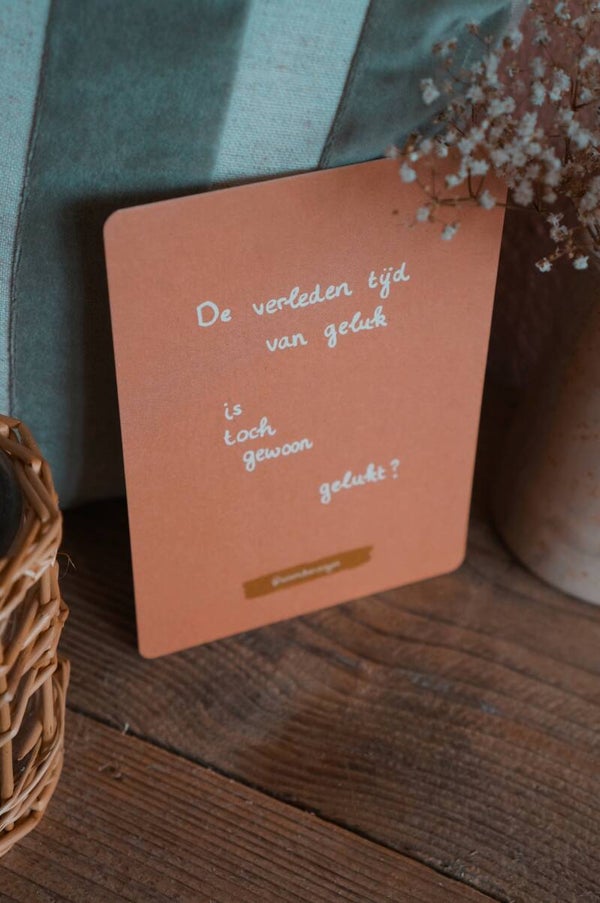 De verleden tijd
van geluk
is
toch
gewoon
gelukt?